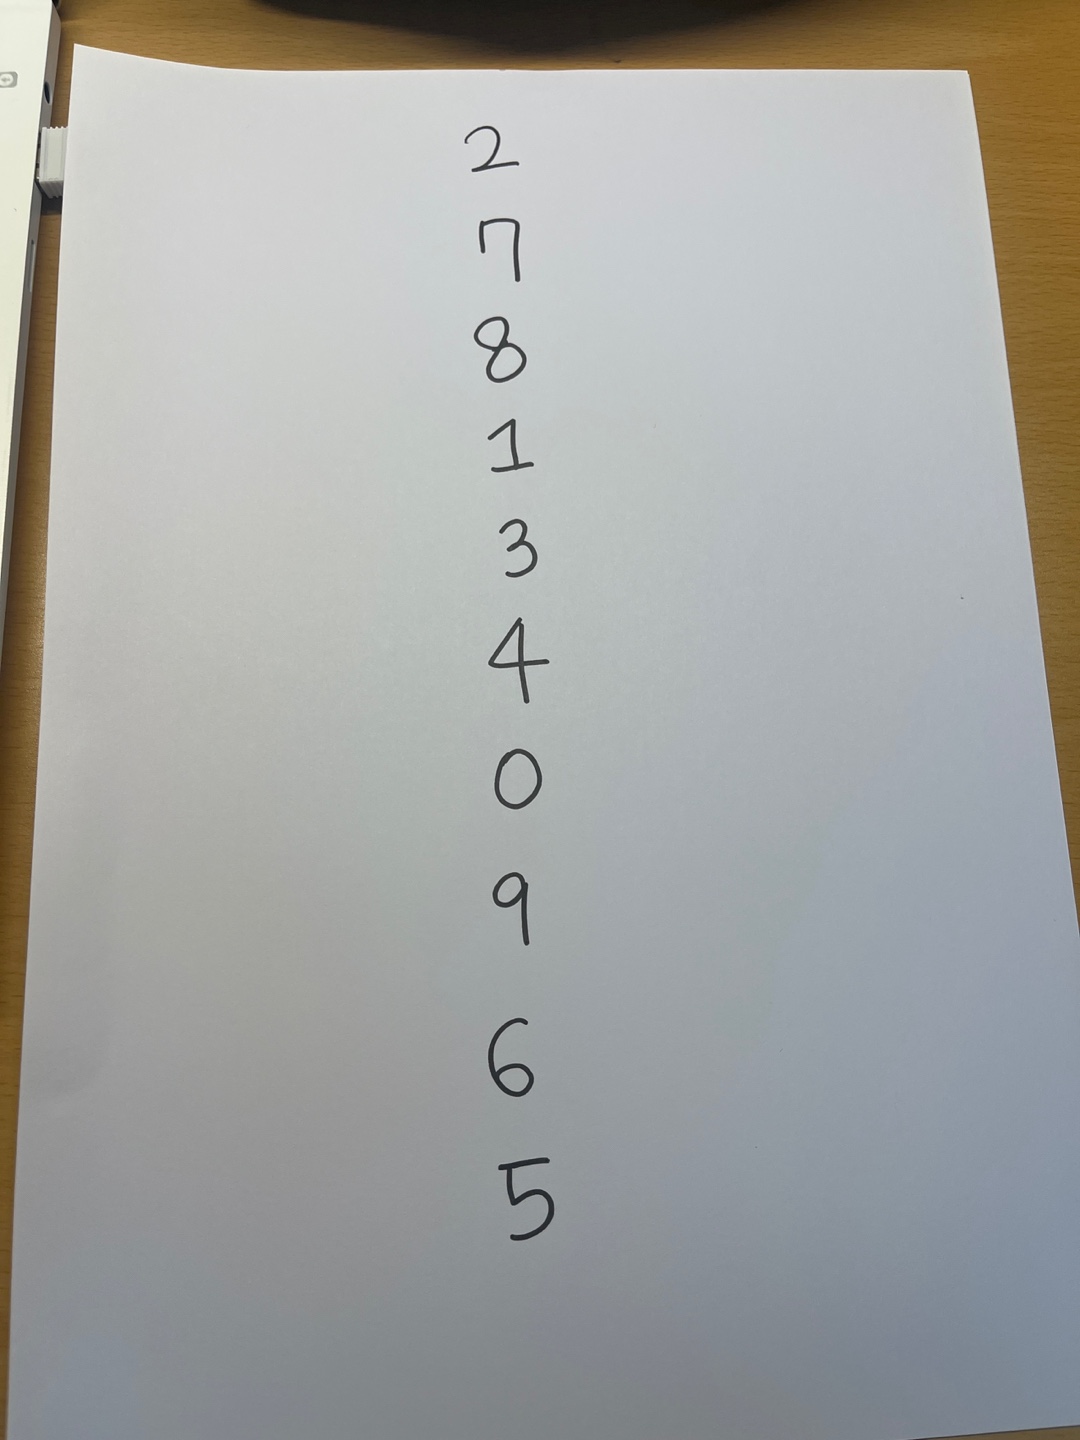 2
7
8
1
3
4
0
9
6
5